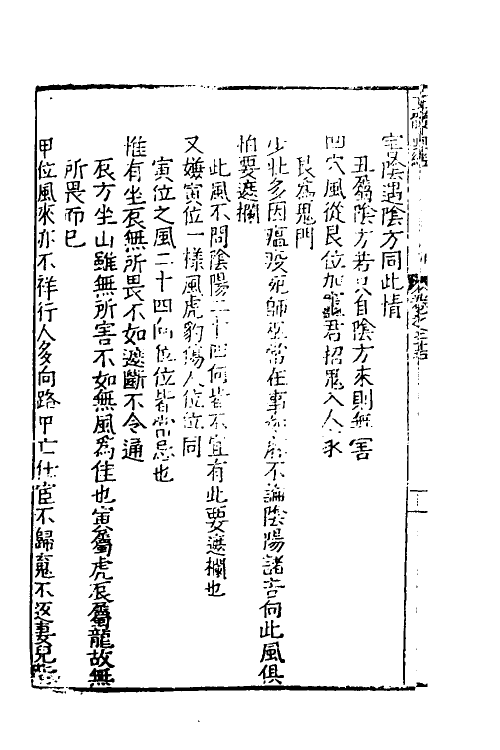 宅陰遇陰方同此情
丑屬陰方若只自陰方來則無害
凹穴風從艮位加竈君招鬼入人家
艮為鬼門
少壯多因瘟疫死師巫常在事如麻不論陰陽諸吉向此風俱
怕要遮欄
此風不問陰陽二十四向皆不宜有此要遮欄也
又嫌寅位一樣風虎豹傷人位位同
寅位之風二十四向位位皆當忌也
惟有坐辰無所畏不如遮斷不令通
辰方坐山雖無所害不如無風為佳也寅屬虎辰屬龍故無
所畏而已
甲位風來亦不祥行人多向路中亡仕宦不歸冤不返妻兒